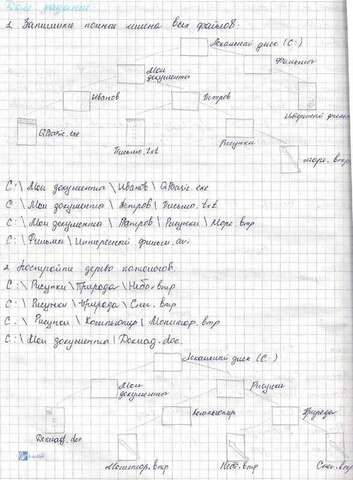 Дом. задание
1. Запишите полные имена всех файлов.
Локальный диск (C:)
Мои документы
Фильмы
Иванов
Петров
Интересный фильм
QBasic.exe
Письмо.txt
Рисунки
Море.bmp
C:\ Мои документы \ Иванов \ QBasic.exe
C:\ Мои документы \ Петров \ Письмо.txt
C:\ Мои документы \ Петров \ Рисунки \ Море.bmp
C:\ Фильмы \ Интересный фильм.avi
2. Постройте дерево каталогов.
C:\ Рисунки \ Природа \ Небо.bmp
C:\ Рисунки \ Природа \ Снег.bmp
C:\ Рисунки \ Компьютер \ Монитор.bmp
C:\ Мои документы \ Доклад.doc
Локальный диск (C:)
Мои документы
Рисунки
Компьютер
Природа
Доклад.doc
Монитор.bmp
Небо.bmp
Снег.bmp